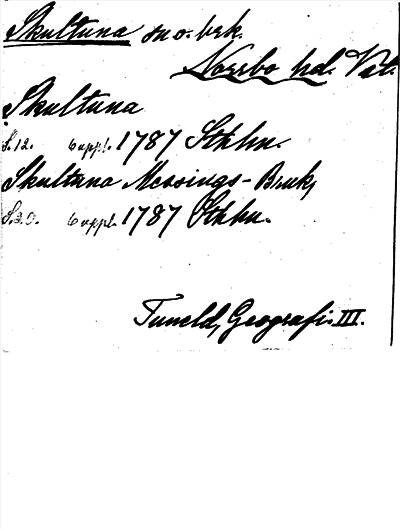 Skultuna sn o. brk.
Norrbo hd. Vstm.
Skultuna
S. 12. 6 uppl. 1787 Sthlm.
Skultuna Messings-Bruk,
S. 30. 6 uppl. 1787 Sthlm.
Tuneld, Geografi III.